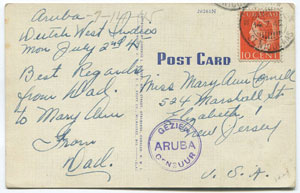 Aruba-7-14/7-45
Dutch West Indies
Mon July 2nd
Best Regards
from Dad.
to Mary Ann
From
Dad.
POST CARD
10 CENT
Miss Mary Ann Cornell
524 Marshall St
Elizabeth
New Jersey
U.S.A.
GEZIEN
ARUBA
CENSUUR